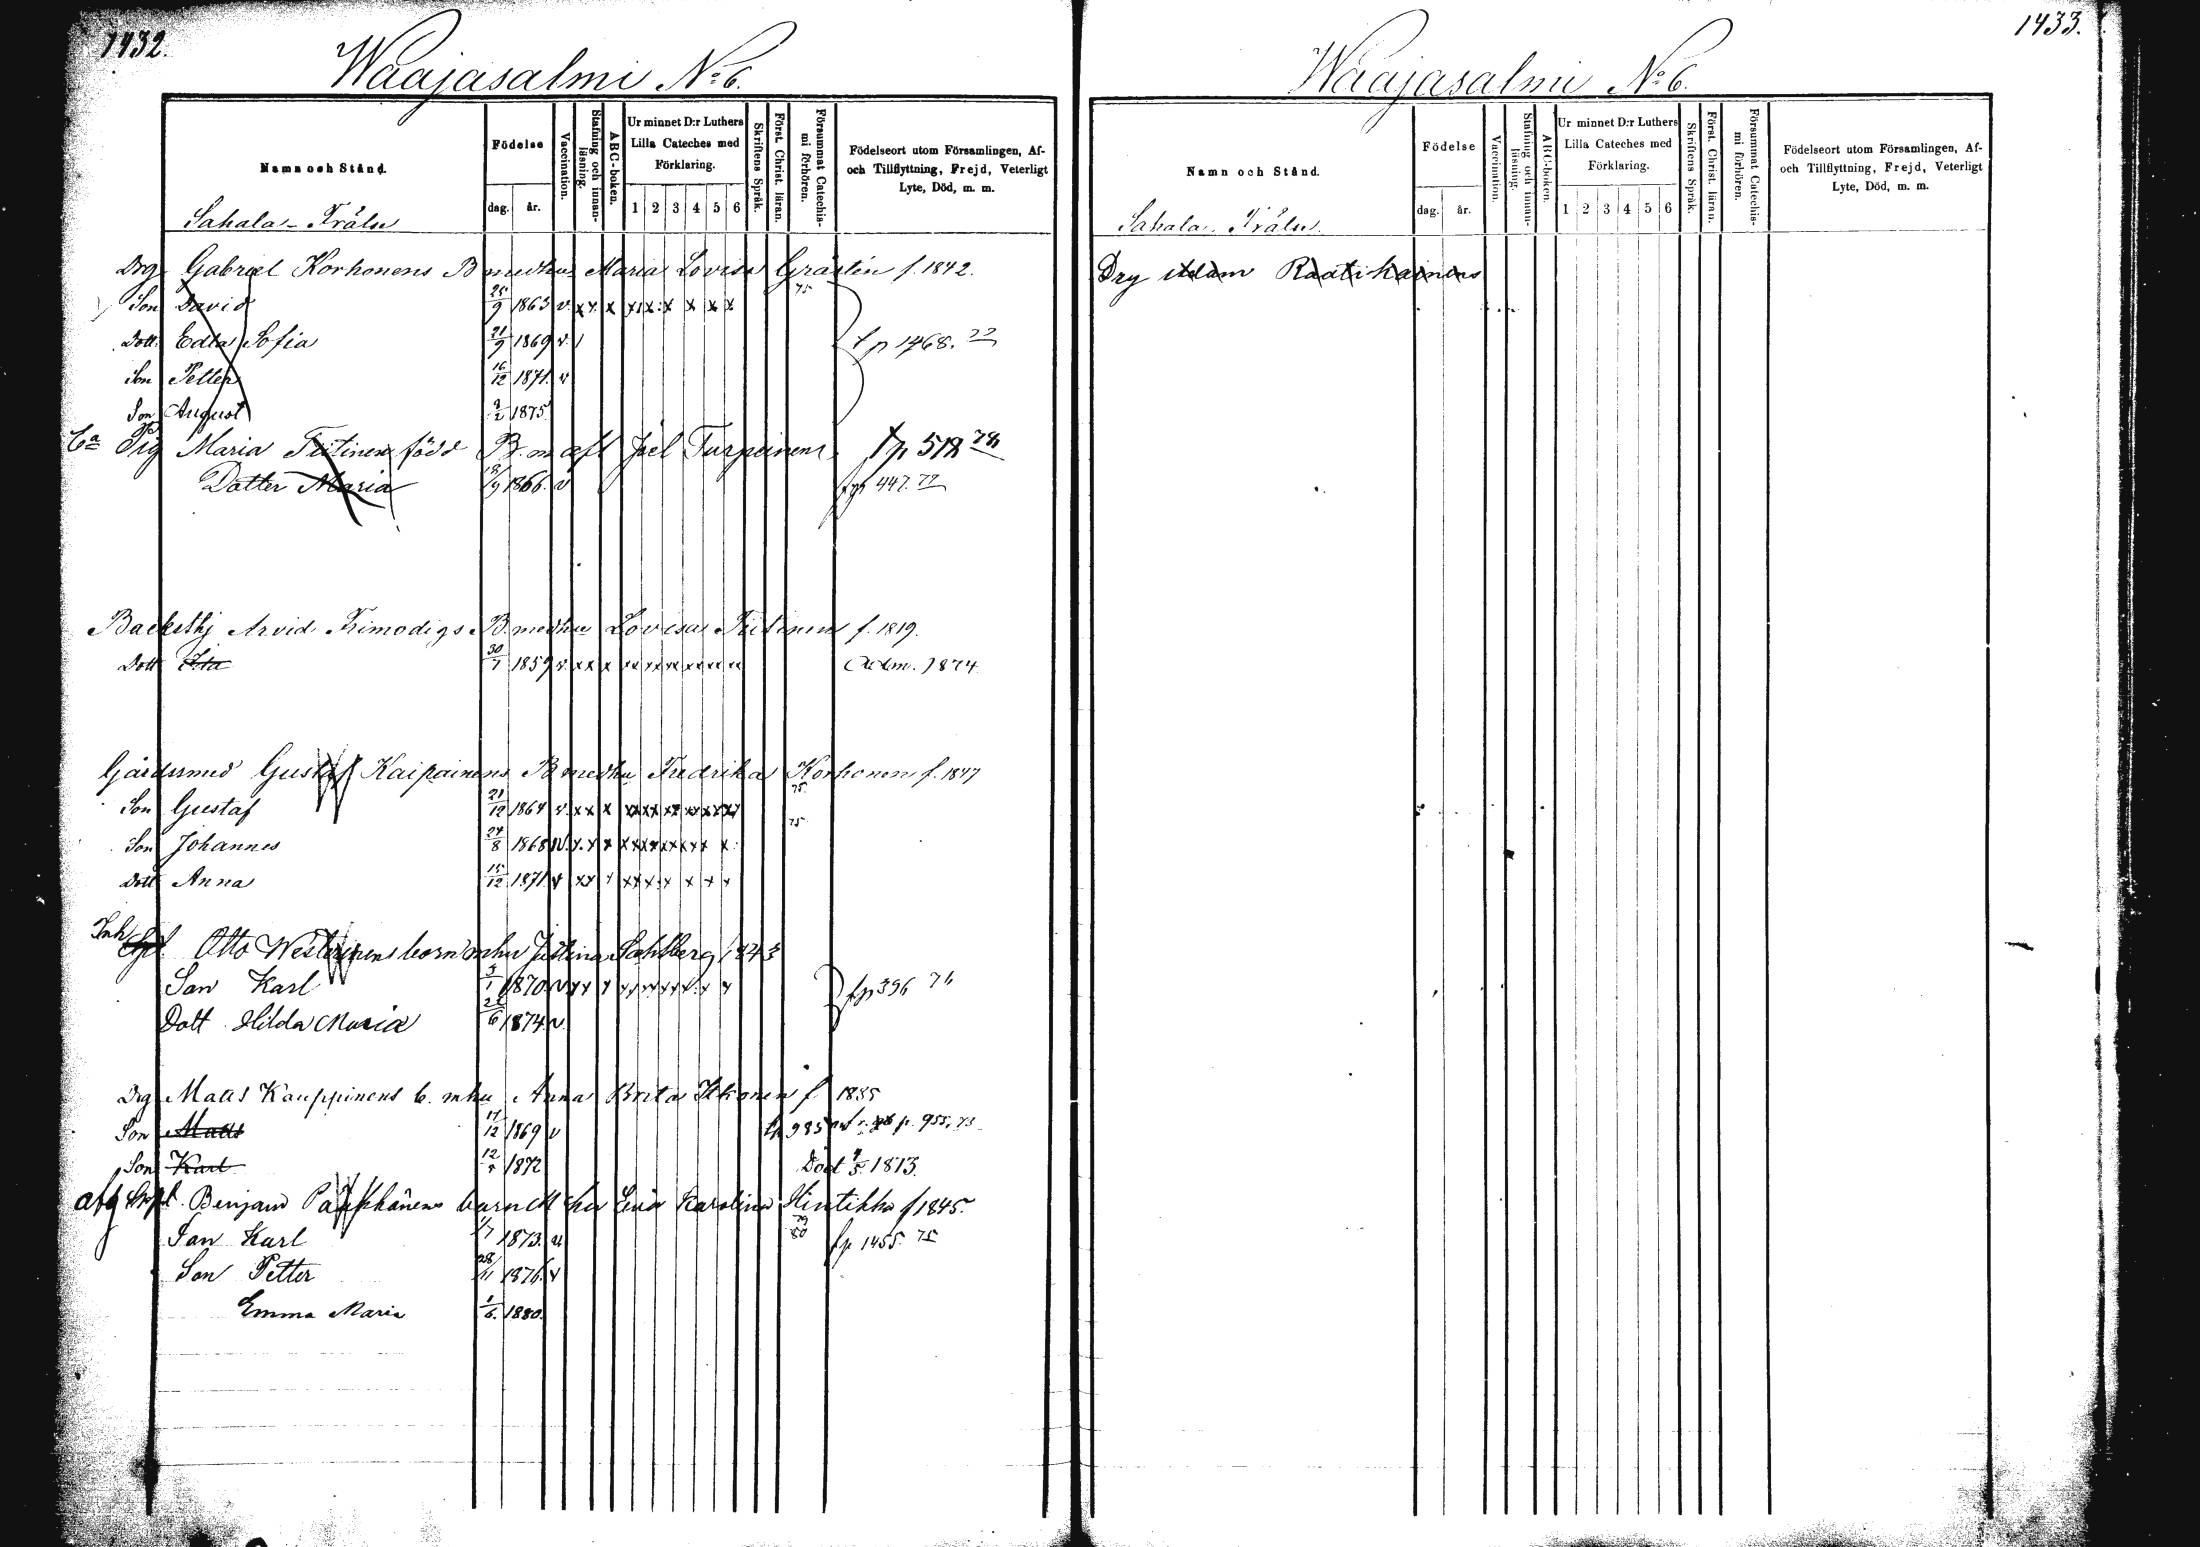 1432.
Waajasalmi No 6.
Namn och Stånd.
Födelse
dag. år.
Vaccination.
Stafning och innanläsning.
ABC-boken.
Ur minnet D:r Luthers Lilla Cateches med Förklaring.
1 2 3 4 5 6
Skriftens Språk.
Först. Christ. läran.
Försummat Catechismi förhören.
Födelseort utom Församlingen, Af- och Tillflyttning, Frejd, Veterligt Lyte, Död, m. m.
Sahala-
Drg Gabriel Korhonens B medhu Maria Lovisa f. 1842.
Son David 25/9 1863 v. x x. x x x x x x x 75
Dott. Edla Sofia 21/9 1869 v. fp 1468. 22
Son Petter 16/12 1871. v
Son August 1875
Pig Maria Tiitinen född B. m aft Joel Turpeinens fp 518 78
Dotter Maria 1866. v 447. 72
Backsthj Arvid Frimodigs B. medhu Lovisa Tiitinen f. 1819.
Dott Ida 30/7 1859 v. x x x Adm. 1874
Gårdsmed Gustaf Kaipainens B medhu Fredrika Korhonen f. 1847
Son Gustaf 21/12 1864 v. x x x 75.
Son Johannes 24/8 1868 v. x x 75
Dott Anna 15/12 1871 v x x
Inh Otto Westerinens barn mhu Sahlberg 1843
Son Karl 1870 v fp 396 76
Dott Hilda Maria 1874 v
Drg Mats Kauppinens b. mhu Anna Brita Itkonen f 1835
Son Mats 17/12 1869 v p. 955, 73
Son Karl 1872 Död 1873.
afg Benjam Pääkkönens barn M hu Eva Karolina Hintikka f 1845.
Son Karl 1/7 1873. v fp 1455. 75
Son Petter 28/11 1876. v
Emma Maria 1/6. 1880.
1433.
Waajasalmi No 6.
Namn och Stånd.
Födelse
dag. år.
Vaccination.
Stafning och innanläsning.
ABC-boken.
Ur minnet D:r Luthers Lilla Cateches med Förklaring.
1 2 3 4 5 6
Skriftens Språk.
Först. Christ. läran.
Försummat Catechismi förhören.
Födelseort utom Församlingen, Af- och Tillflyttning, Frejd, Veterligt Lyte, Död, m. m.
Sahala-
Drg Adam Raatikainens